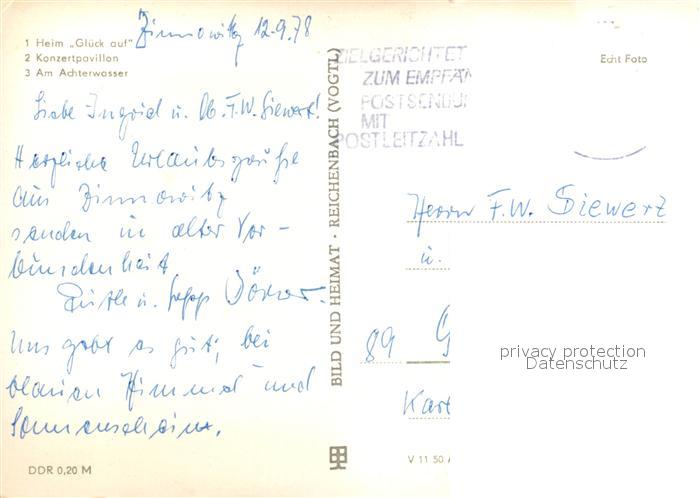 Zinnowitz 12.9.78
1 Heim „Glück auf"
2 Konzertpavillon
3 Am Achterwasser
Liebe Ingrid u. Ob. F.W. Siewert!
Herzliche Urlaubsgrüße
aus Zinnowitz
senden in alter Ver-
bundenheit
u. Sepp
Uns geht es gut, bei
blauem Himmel und
Sonnenschein.
DDR 0,20 M
BILD UND HEIMAT · REICHENBACH (VOGTL)
ZIELGERICHTET
ZUM EMPFÄN
POSTSENDUN
MIT
POSTLEITZAHL
Echt Foto
Herrn F.W. Siewert
u.
89 G
Karl
V 11 50 A
privacy protection
Datenschutz